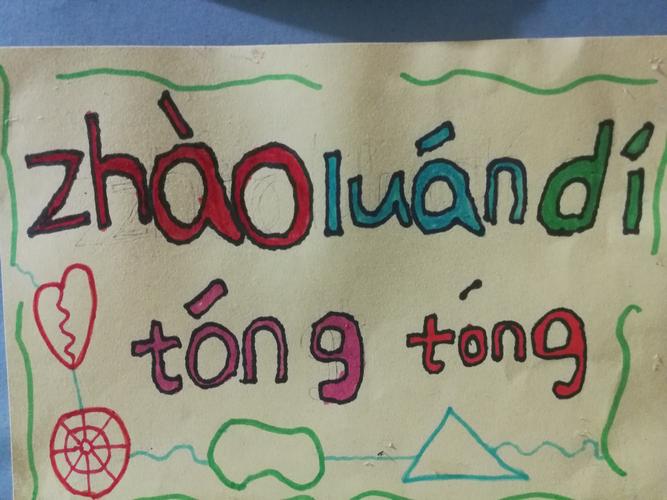 zhào luán dí
tóng tóng